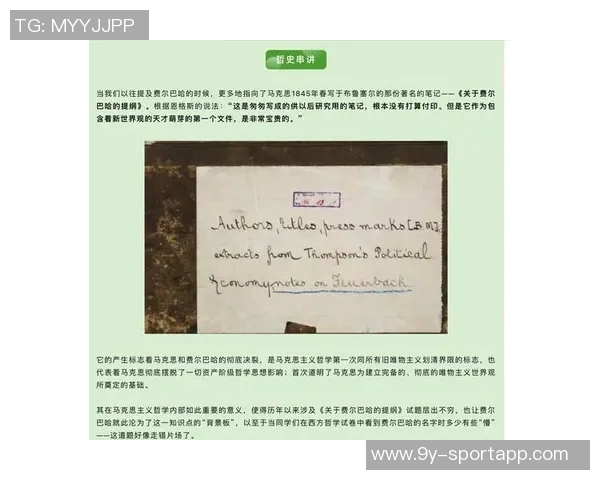 TG: MYYJJPP
哲史串讲
当我们以往提及费尔巴哈的时候，更多地指向了马克思1845年春写于布鲁塞尔的那份著名的笔记——《关于费尔
巴哈的提纲》。根据恩格斯的说法：“这是匆匆写成的供以后研究用的笔记，根本没有打算付印。但是它作为包
含着新世界观的天才萌芽的第一个文件，是非常宝贵的。”
Authors, titles, press marks [B.M.],
extracts from Thompson's Political
Economy, notes on Feuerbach.
它的产生标志着马克思和费尔巴哈的彻底决裂，是马克思主义哲学第一次同所有旧唯物主义划清界限的标志，也
代表着马克思彻底摆脱了一切资产阶级哲学思想影响；首次道明了马克思为建立完备的、彻底的唯物主义世界观
所奠定的基础。
其在马克思主义哲学内部如此重要的意义，使得历年以来涉及《关于费尔巴哈的提纲》试题层出不穷，也让费尔
巴哈就此沦为了这一知识点的“背景板”，以至于当同学们在西方哲学试卷中看到费尔巴哈的名字时多少有些“懵”
——这道题好像走错片场了。
www.9y-sportapp.com